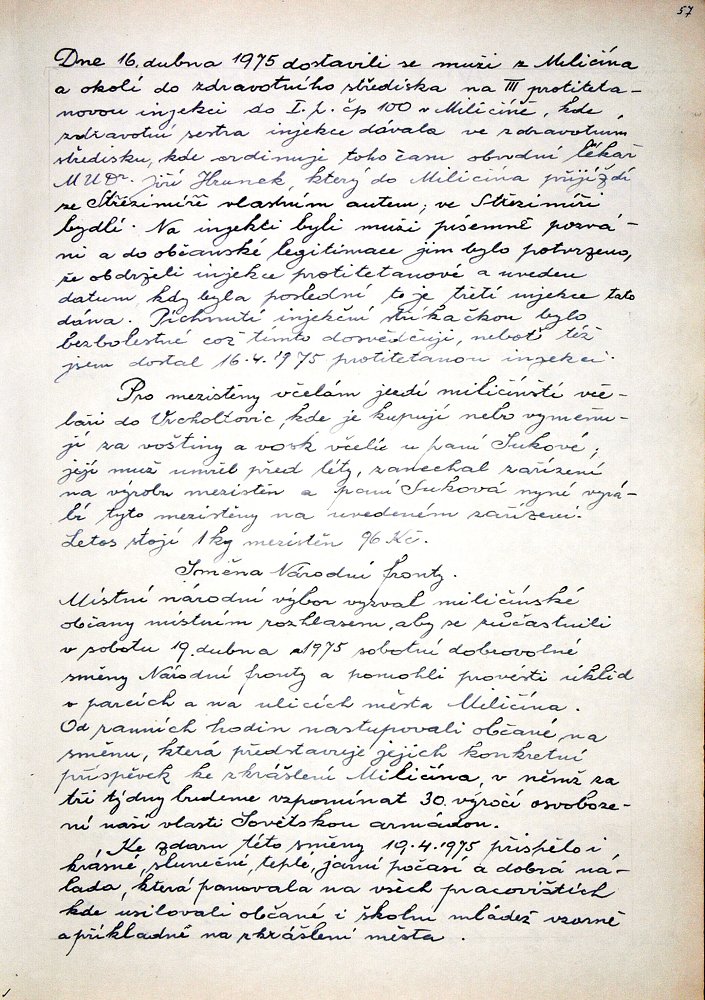 57
Dne 16. dubna 1975 dostavili se muži z Miličína
a okolí do zdravotního střediska na III protiteta-
novou injekci do I. p. čp 100 v Miličíně, kde
zdravotní sestra injekce dávala ve zdravotním
středisku, kde ordinuje toho času obvodní lékař
MUDr. Jiří Hrunek, který do Miličína přijíždí
ze Střezimíře vlastním autem; ve Střezimíři
bydlí. Na injekci byli muži písemně pozvá-
ni a do občanské legitimace jim bylo potvrzeno,
že obdrželi injekce protitetanové a uveden
datum, kdy byla poslední to je třetí injekce tato
dána. Píchnutí injekční stříkačkou bylo
bezbolestné což tímto dosvědčuji, neboť též
jsem dostal 16.4.1975 protitetanou injekci.
Pro mezistěny včelám jezdí miličínští vče-
laři do Vrcholtovic, kde je kupují nebo vyměňu-
jí za voštiny a vosk včelí u paní Sukové;
její muž umřel před léty, zanechal zařízení
na výrobu mezistěn a paní Suková nyní vyrá-
bí tyto mezistěny na uvedeném zařízení.
Letos stojí 1 kg mezistěn 96 Kč.
Směna Národní fronty.
Místní národní výbor vyzval miličínské
občany místním rozhlasem, aby se zúčastnili
v sobotu 19. dubna 1975 sobotní dobrovolné
směny Národní fronty a pomohli provésti úklid
v parcích a na ulicích města Miličína.
Od ranních hodin nastupovali občané, na
směnu, která představuje jejich konkretní
příspěvek ke zkrášlení Miličína, v němž za
tři týdny budeme vzpomínat 30. výročí osvoboze-
ní naší vlasti Sovětskou armádou.
Ke zdaru této směny 19.4.1975 přispělo i
krásné, slunečné, teplé, jarní počasí a dobrá ná-
lada, která panovala na všech pracovištích
kde usilovali občané i školní mládež vzorně
a příkladně na zkrášlení města.